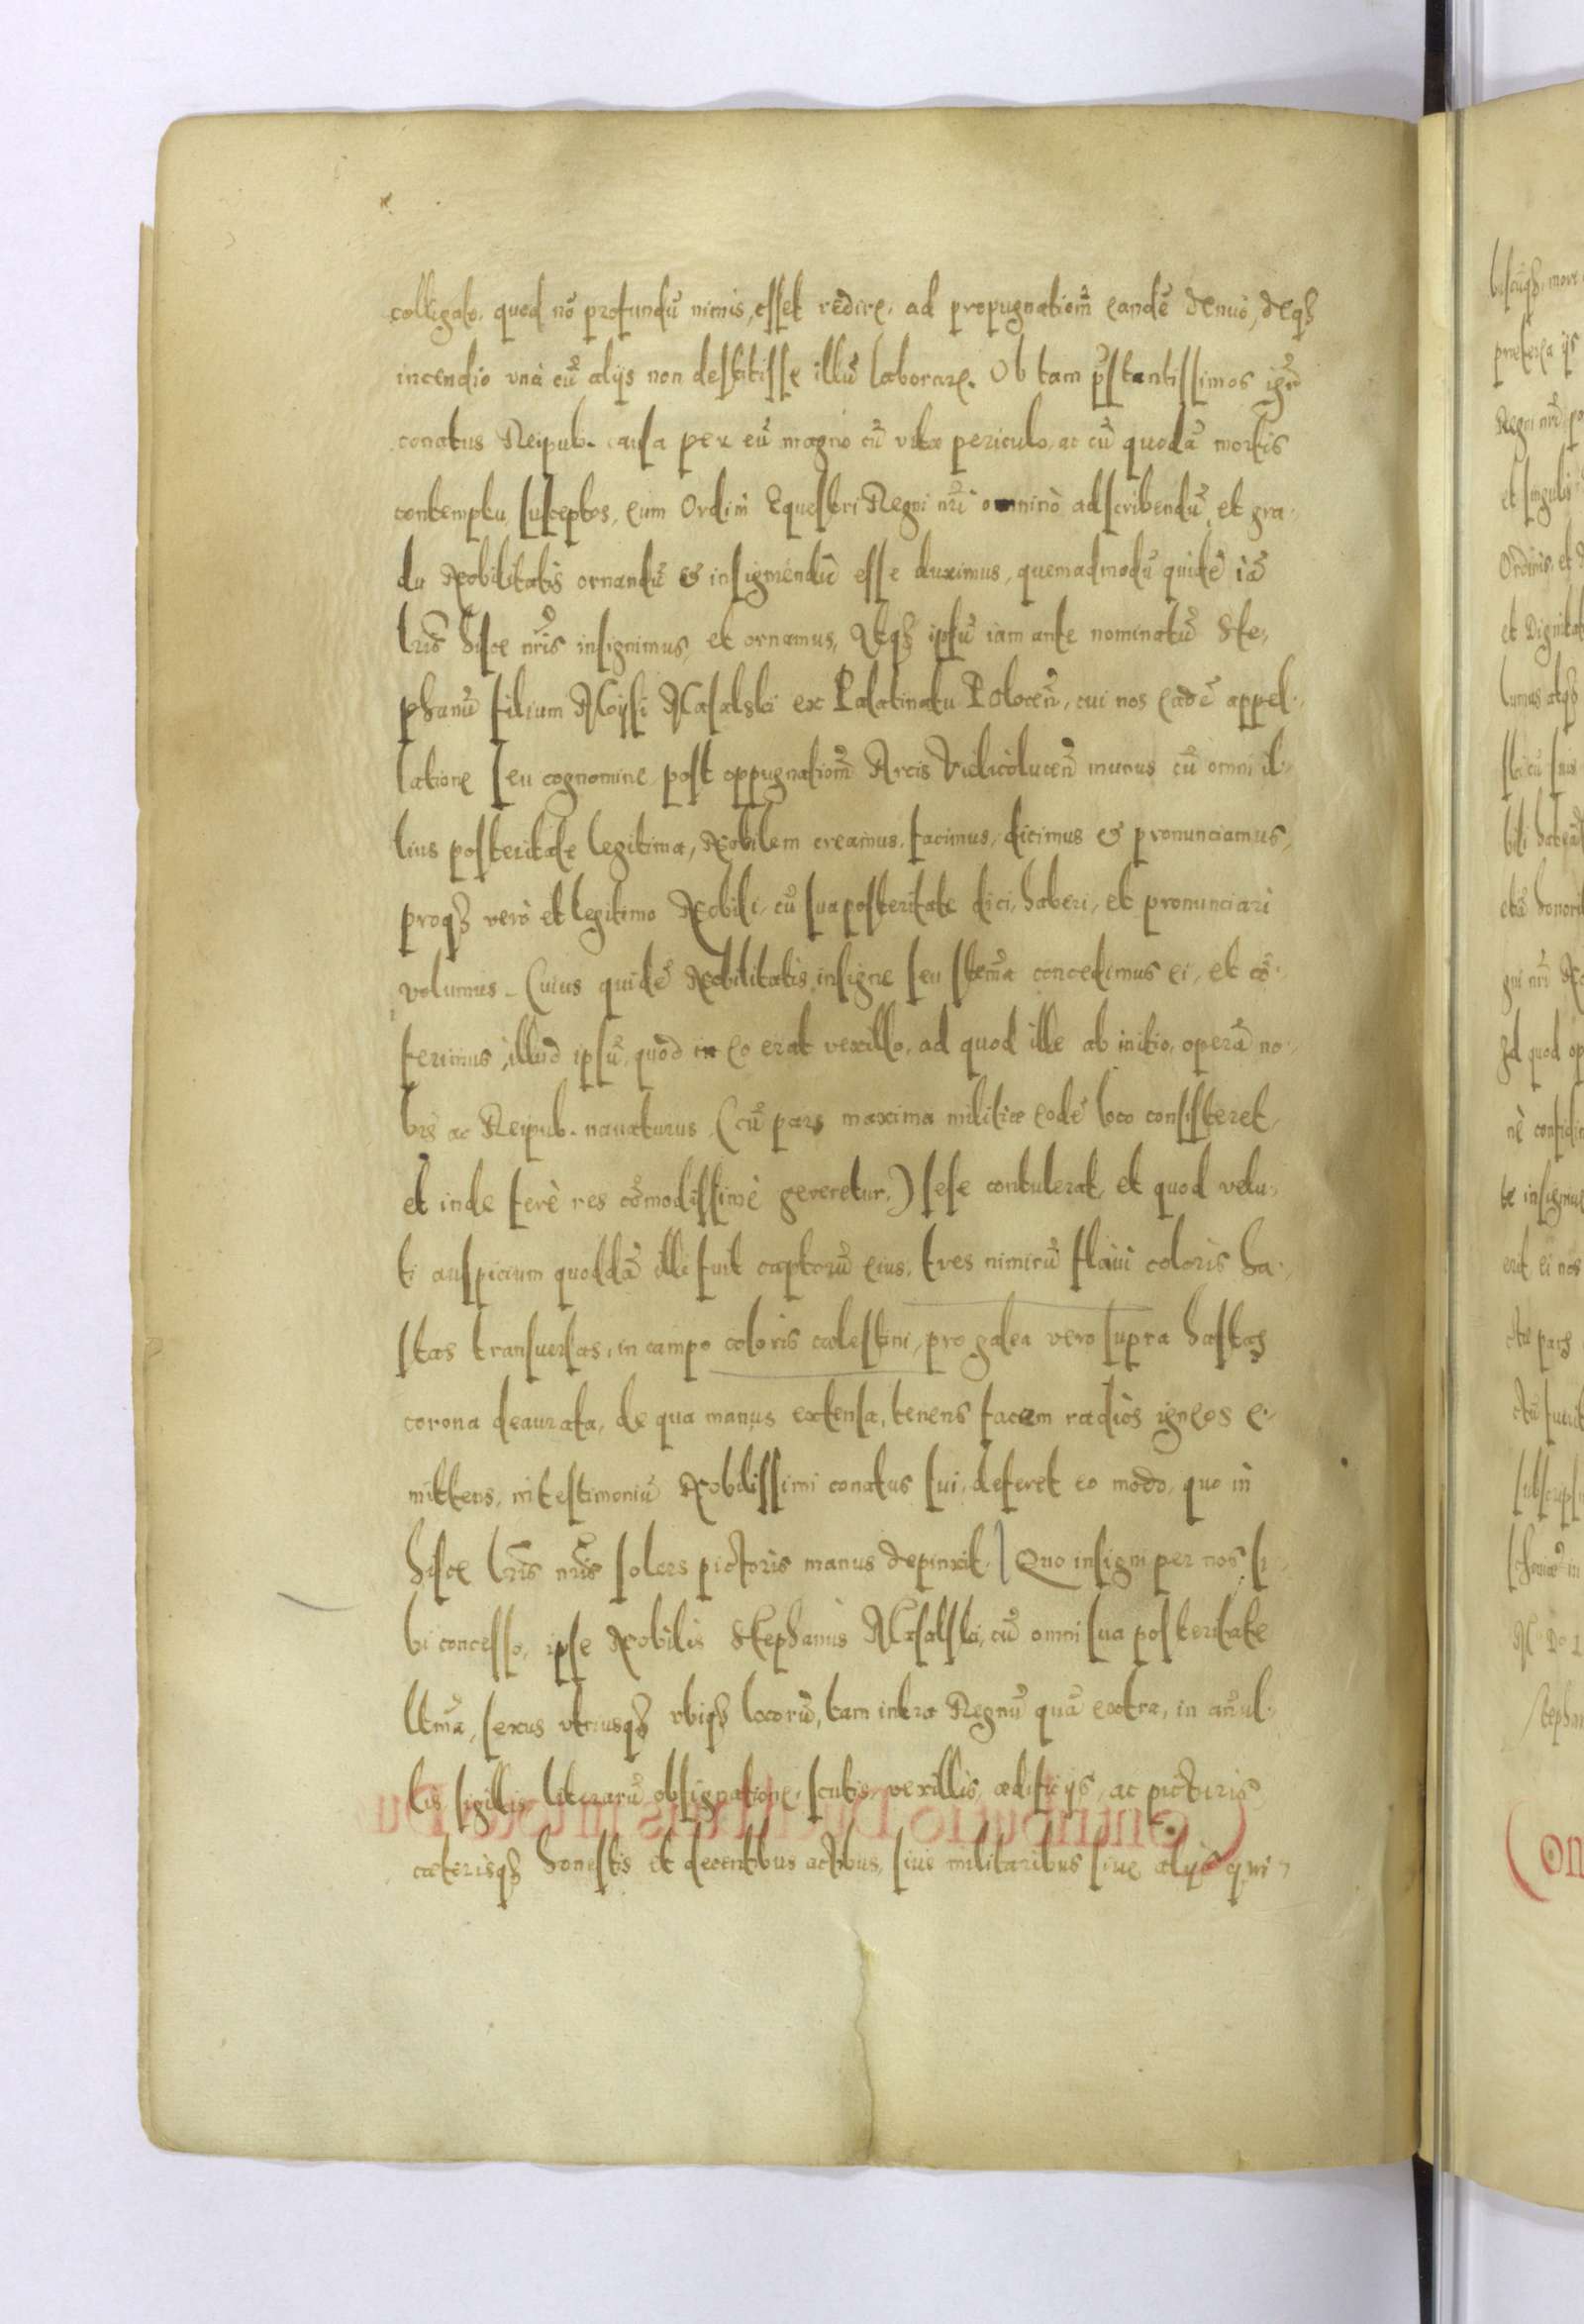 colligato, quod nō profundū nimis, esset redire, ad propugnationē eandē denuò, deqȝ
incendio vnà cū alijs non destitisse illū laborare. Ob tam pr̄stantissimos igr̄
conatus Reipub. causa per eū magno cū vitæ periculo, ac cū quodā mortis
contemptu susceptos, eum Ordini Equestri Regni nr̄i omninò adscribendū, et gra-
du Nobilitatis ornandū & insigniendū esse duximus, quemadmodū quidē iā
lr̄is hisce nr̄is insignimus, et ornamus, Atqȝ ipsū iam ante nominatū Ste-
phanū filium Moysi Masalski ex Palatinatu Polocen̄, cui nos eādē appel-
latione seu cognomine post oppugnationē Arcis Vielicolucen̄ munus cū omni il-
lius posteritate legitima, Nobilem creamus, facimus, dicimus & pronunciamus,
proqȝ verò et legitimo Nobili, cū sua posteritate dici, haberi, et pronunciari
volumus. Cuius quidē Nobilitatis insigne seu stem̄a concedimus ei, et cō-
ferimus, illud ipsū, quod in eo erat vexillo, ad quod ille ab initio, operā no-
bis ac Reipub. nauaturus, (cū pars maxima militiæ eodē loco consisteret,
et inde ferè res cōmodissimè gereretur,) sese contulerat, et quod velu-
ti auspicium quoddā illi fuit captorū eius, tres nimirū flaui coloris ha-
stas transuersas, in campo coloris cælestini, pro galea vero supra hastas
corona deaurata, de qua manus extensa, tenens facem radios igneos e-
mittens, in testimoniū Nobilissimi conatus sui, deferet eo modo, quo in
hisce lr̄is nr̄is solers pictoris manus depinxit. Quo insigni per nos si-
bi concesso, ipse Nobilis Stephanus Masalski, cū omni sua posteritate
ltm̄a, sexus vtriusqȝ vbiqȝ locorū, tam intra Regnū quā extra, in an̄ul-
lis sigillis, literarū obsignatione, scutis, vexillis, ædificijs, ac picturis
cæterisqȝ honestis et decentibus actibus, siue militaribus siue alijs qui-